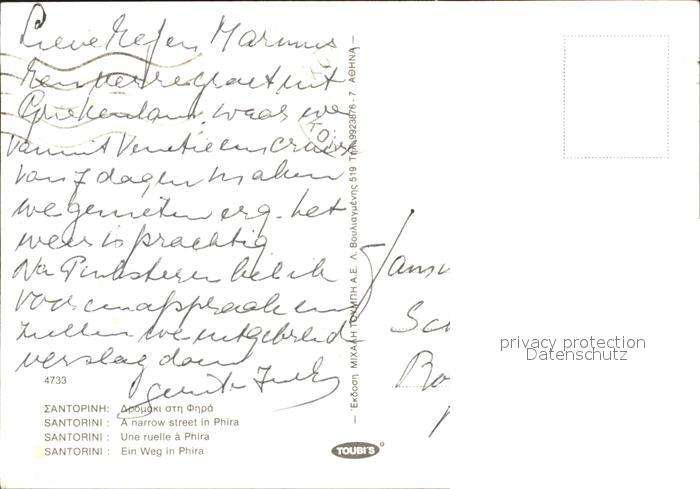 Lieve Mefen Marinus
Een verre groet uit
Griekenland, waar we
vanuit Venetie een cruise
van 7 dagen maken
we genieten erg. het
weer is prachtig
Na Pinksteren bel ik
voor een afspraak en
zullen we uitgebreid
verslag doen
4733
ΣΑΝΤΟΡΙΝΗ: Δρομάκι στη Φηρά
SANTORINI : A narrow street in Phira
SANTORINI : Une ruelle à Phira
SANTORINI : Ein Weg in Phira
— Έκδοση ΜΙΧΑΛΗ ΤΟΥΜΠΗ Α.Ε. Λ. Βουλιαγμένης 519 Τηλ. 9923876 - 7 ΑΘΗΝΑ —
TOUBI'S
Jans
Sc
Bo
privacy protection
Datenschutz